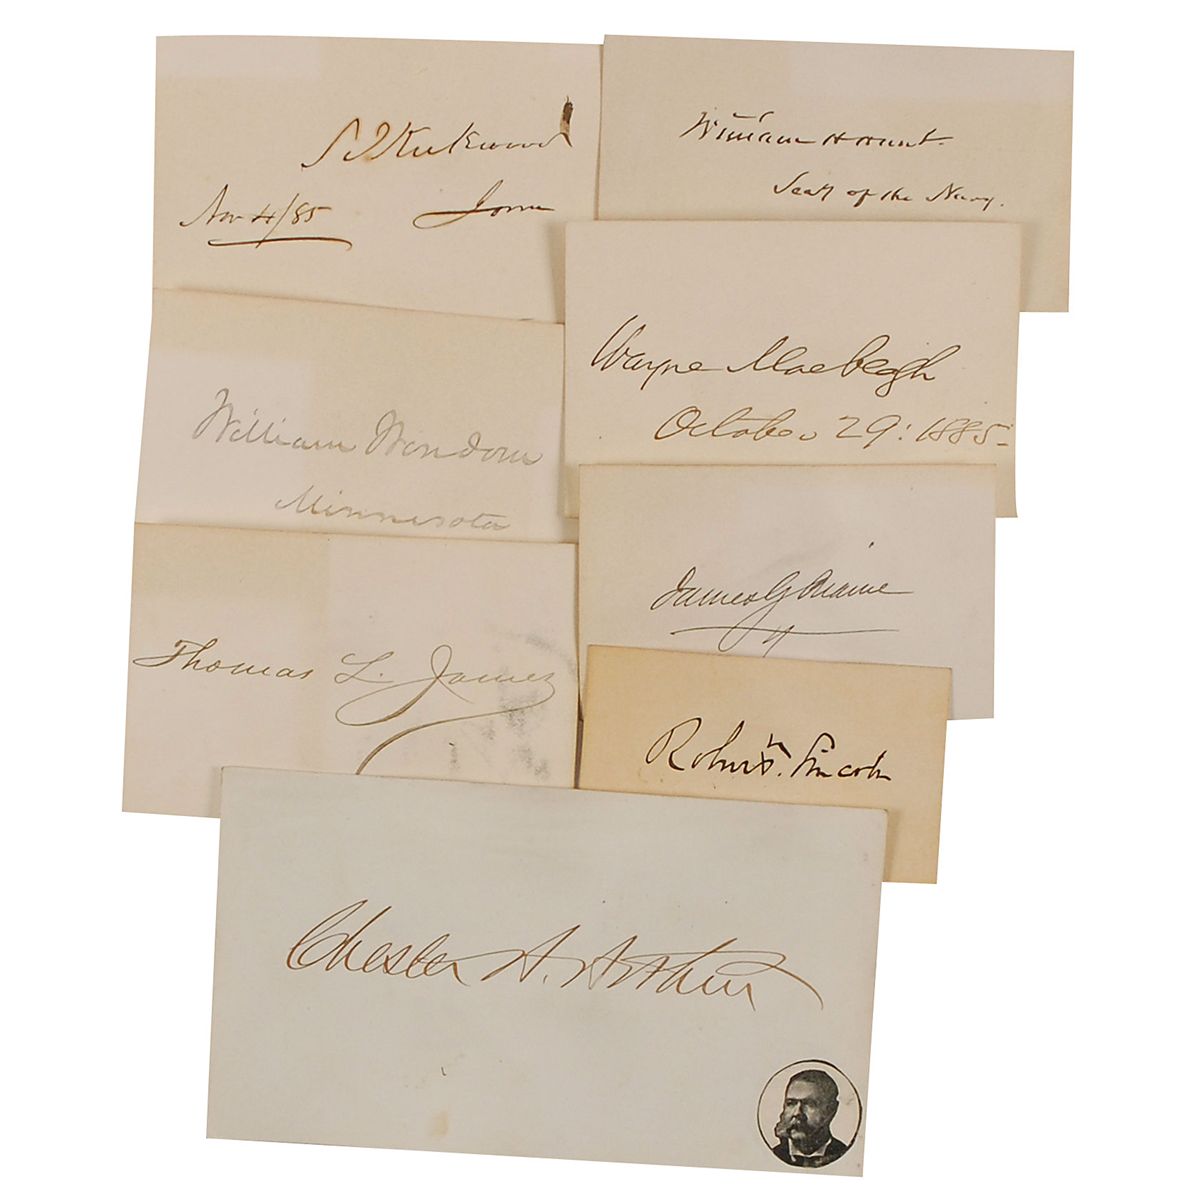 S J Kirkwood
Nov 4/85
Iowa
William H Hunt.
Secy of the Navy.
Wayne MacVeagh
October 29: 1885-
William Windom
Minnesota
James G Blaine
Thomas L. James
Robert T. Lincoln
Chester A. Arthur